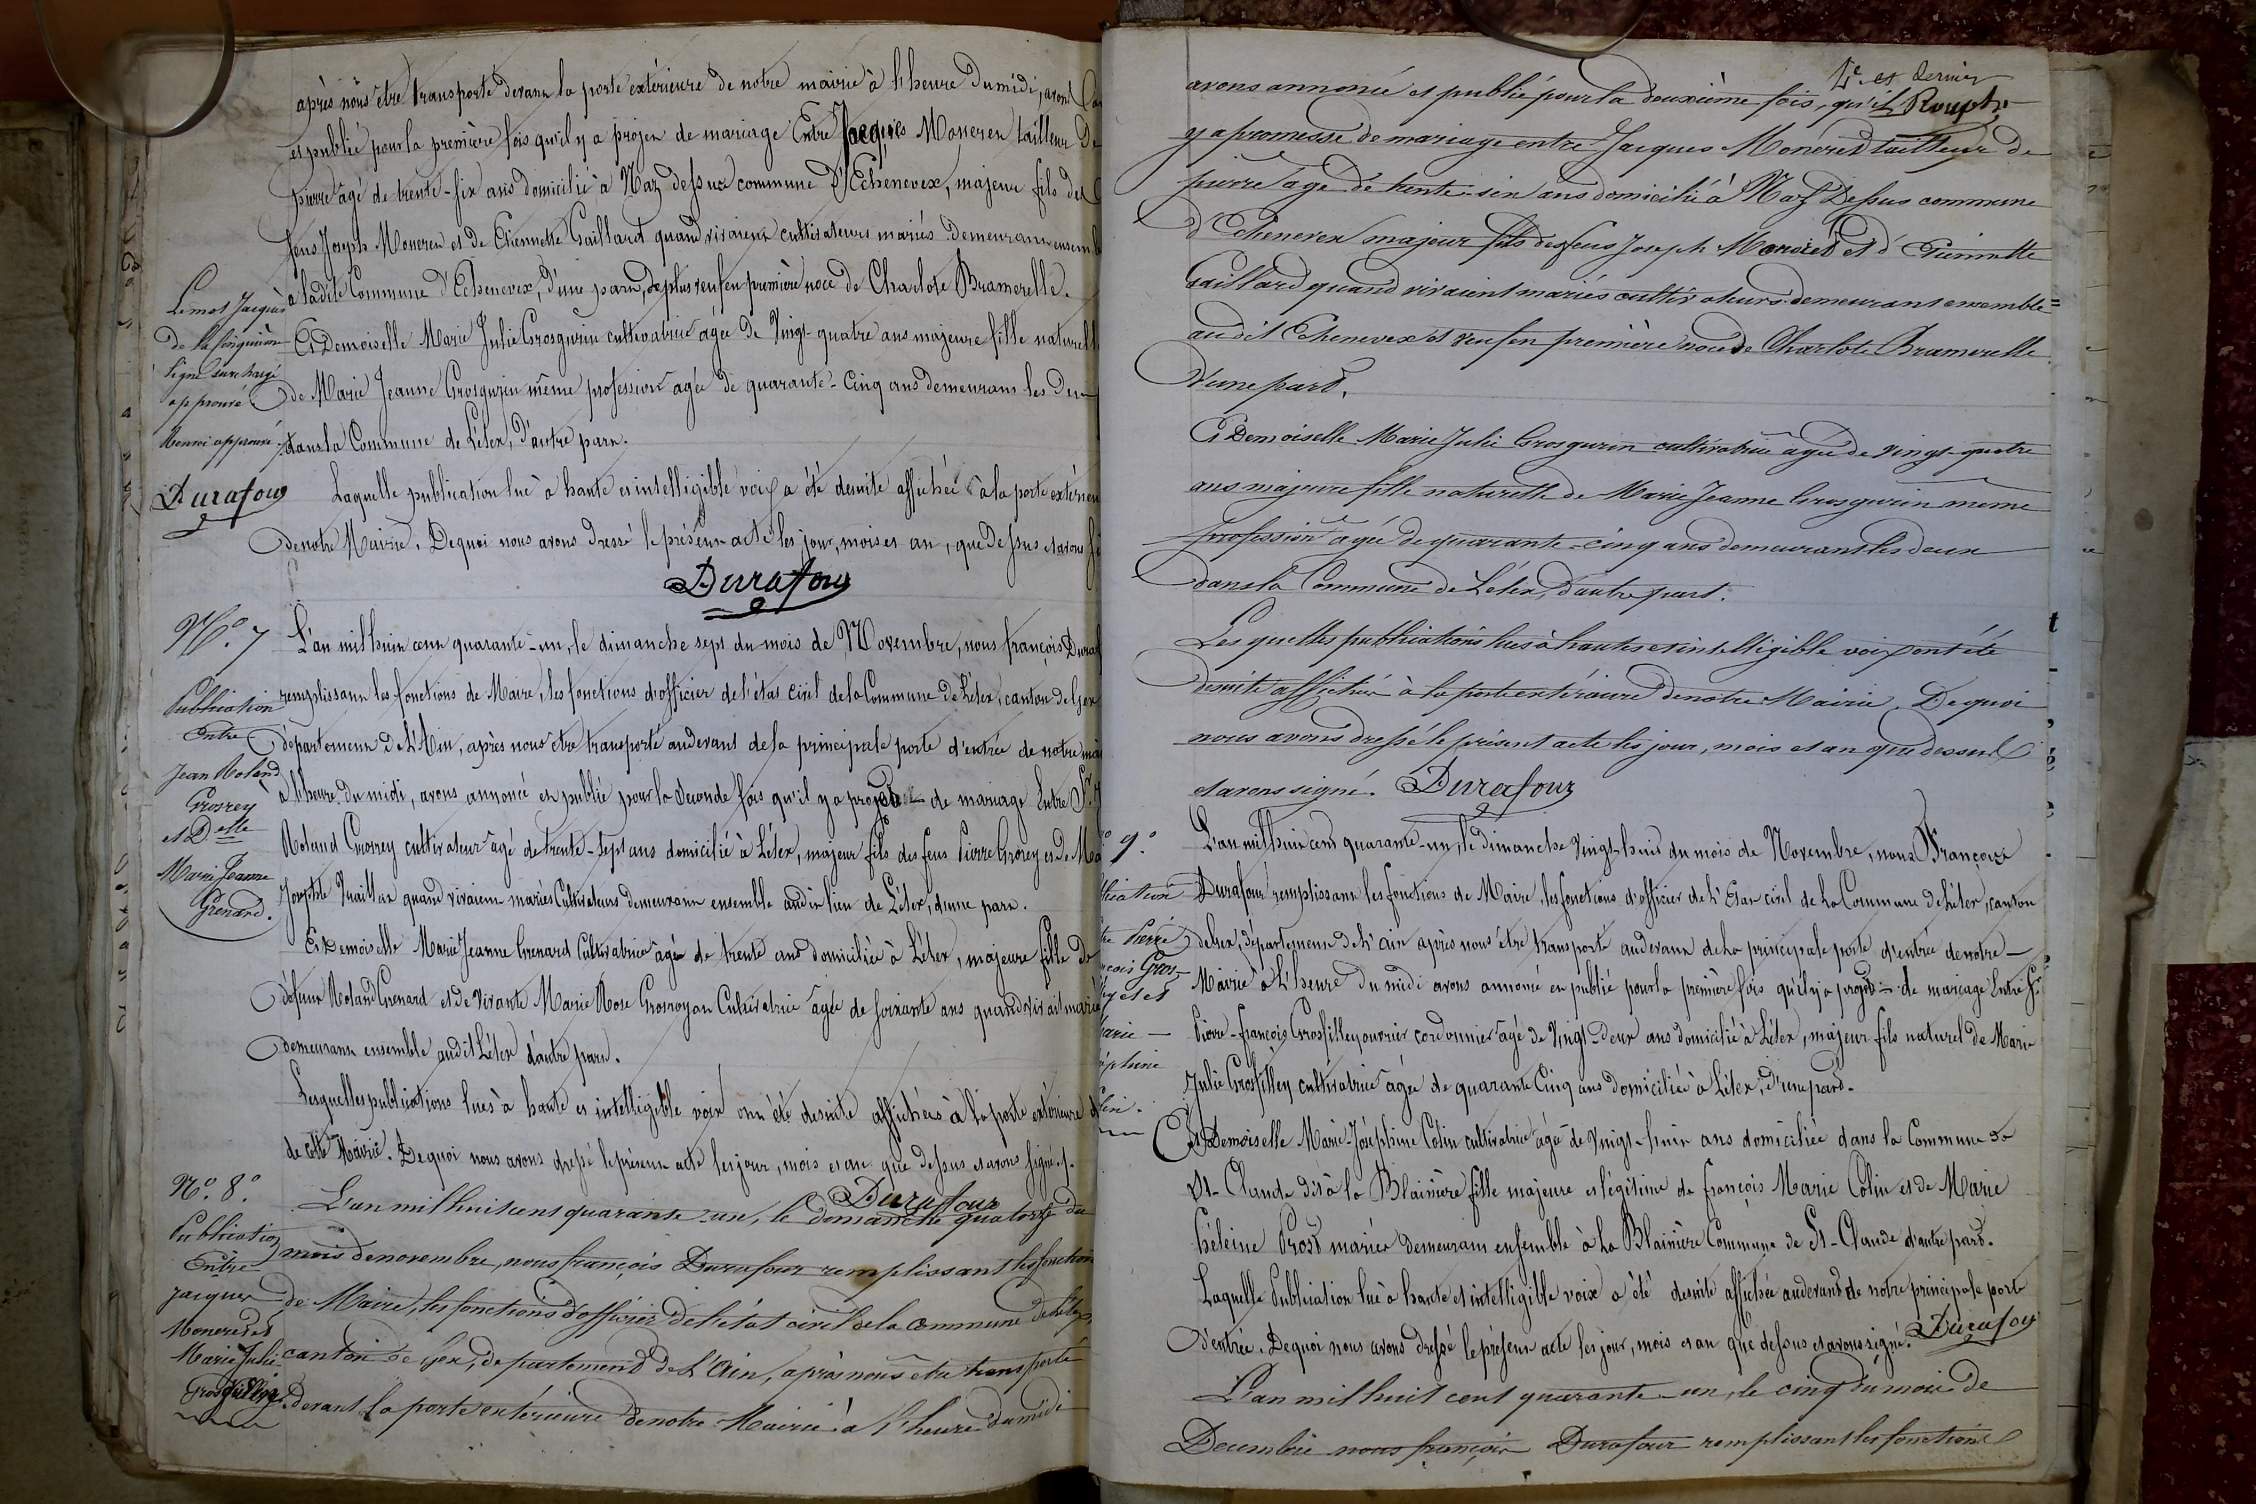 après nous être transporté devant la porte extérieure de notre mairie à l'heure du midi, avons
et publié pour la première fois qu'il y a projet de mariage Entre Jacques Moneret tailleur de
pierre âgé de trente-six ans domicilié à Naz dessus commune d'Echenevex, majeur fils des
feus Joseph Moneret et de Etiennette Gaillard quand vivaient cultivateurs mariés demeurant ensemble
à ladite Commune d'Echenevex, d'une part, de plus veuf en première noce de Charlote Bramerelle.
Le mot Jacques
de la cinquième
ligne surchargé
approuvé
Renvoi approuvé
Durafour
Et Demoiselle Marie Julie Grosgurin cultivatrice agée de Vingt-quatre ans majeure fille naturelle
de Marie Jeanne Grosgurin même profession agée de quarante-Cinq ans demeurant les deux
dans la Commune de Lélex, d'autre part.
Laquelle publication lue à haute et intelligible voix a été desuite affichée à la porte extérieure
de notre Mairie. De quoi nous avons dressé le présent acte les jour, mois et an, que Dessus et avons
Durafour
N.° 7
Publication
Entre
Jean Roland
Grosrey
et D.elle
Marie Jeanne
Grenard.
L'an mil huit cent quarante-un, le dimanche sept du mois de Novembre, nous françois
remplissant les fonctions de Maire, les fonctions d'officier de l'état civil de la Commune de Lélex, canton de Gex
département de l'Ain, après nous être transporté audevant de la principale porte d'entrée de notre
à l'heure du midi, avons annoncé et publié pour la Seconde fois qu'il y a projet de mariage Entre S.r
Roland Grosrey cultivateur agé de trente-sept ans domicilié à Lélex, majeur fils des feus Pierre Grosrey et de
Josephte quand vivaient mariés Cultivateurs demeurant ensemble audit lieu de Lélex, d'une part.
Et Demoiselle Marie Jeanne Grenard Cultivatrice agée de trente ans domiciliée à Lélex, majeure fille de
défunt Roland Grenard et de vivante Marie Rose Cultivatrice agée de soixante ans quand vivait mariés
demeurant ensemble audit Lélex d'autre part.
Lesquelles publications lues à haute et intelligible voix ont été desuite affichées à la porte extérieure
de cette Mairie. De quoi nous avons dressé le présent acte les jour, mois et an que dessus et avons signé.
Durafour
N.° 8.°
Publication
Entre
Jacques
Moneret et
Marie Julie
L'an mil huit cent quarante-un, le dimanche quatorze du
mois de novembre, nous françois Durafour remplissant les fonctions
de Maire, les fonctions d'officier de l'état civil de la commune de Lélex,
canton de Gex, département de L'Ain, après nous être transporté
devant la porte extérieure de notre Mairie à l'heure du midi
avons annoncé et publié pour la deuxième fois, qu'il
y a promesse de mariage entre Jacques Moneret tailleur de
pierre agé de trente-six ans domicilié à Naz Dessus commune
d'Echenevex majeur fils des feus Joseph Moneret et d'Etiennette
Gaillard quand vivaient mariés cultivateurs demeurant ensemble=
audit Echenevex et veuf en première noce de Charlote Bramerelle
d'une part.
Et Demoiselle Marie Julie Grosgurin cultivatrice agée de vingt-quatre
ans majeure fille naturelle de Marie Jeanne Grosgurin même
profession agée de quarante-cinq ans demeurant les deux
dans la Commune de Lélex, d'autre part.
Les quelles publications lues à hautes et intelligible voix ont été
desuite affichées à la porte extérieure de notre Mairie. De quoi
nous avons dressé le présent acte les jour, mois et an que dessus
et avons signé. Durafour
9.°
Pierre
Gros-
et
Marie
L'an mil huit cent quarante-un, le dimanche vingt-huit du mois de Novembre, nous François
Durafour remplissant les fonctions de Maire, les fonctions d'officier de l'Etat civil de la Commune de Lélex, canton
de Gex, département de l'ain après nous être transporté audevant de la principale porte d'entrée de notre
Mairie à L'heure du midi avons annoncé et publié pour la première fois qu'il y a projet de mariage Entre S.r
Pierre-françois Grosfilley ouvrier cordonnier agé de vingt-deux ans domicilié à Lélex, majeur fils naturel de Marie
Julie Grosfilley cultivatrice agée de quarante Cinq ans domiciliée à Lélex, d'une part.
Et Demoiselle Marie-Joséphine Colin cultivatrice agée de vingt-huit ans domiciliée dans la Commune de
St-Claude dit à la Blainière fille majeure et légitime de françois Marie Colin et de Marie
héleine Prost mariés demeurant ensemble à la Blainière Commune de St-Claude d'autre part.
Laquelle Publication lue à haute et intelligible voix a été desuite affichée audevant de notre principale porte
d'entrée. De quoi nous avons dressé le présent acte les jour, mois et an que dessus et avons signé. Durafour
L'an mil huit cent quarante-un, le cinq du mois de
Decembre nous françois Durafour remplissant les fonctions